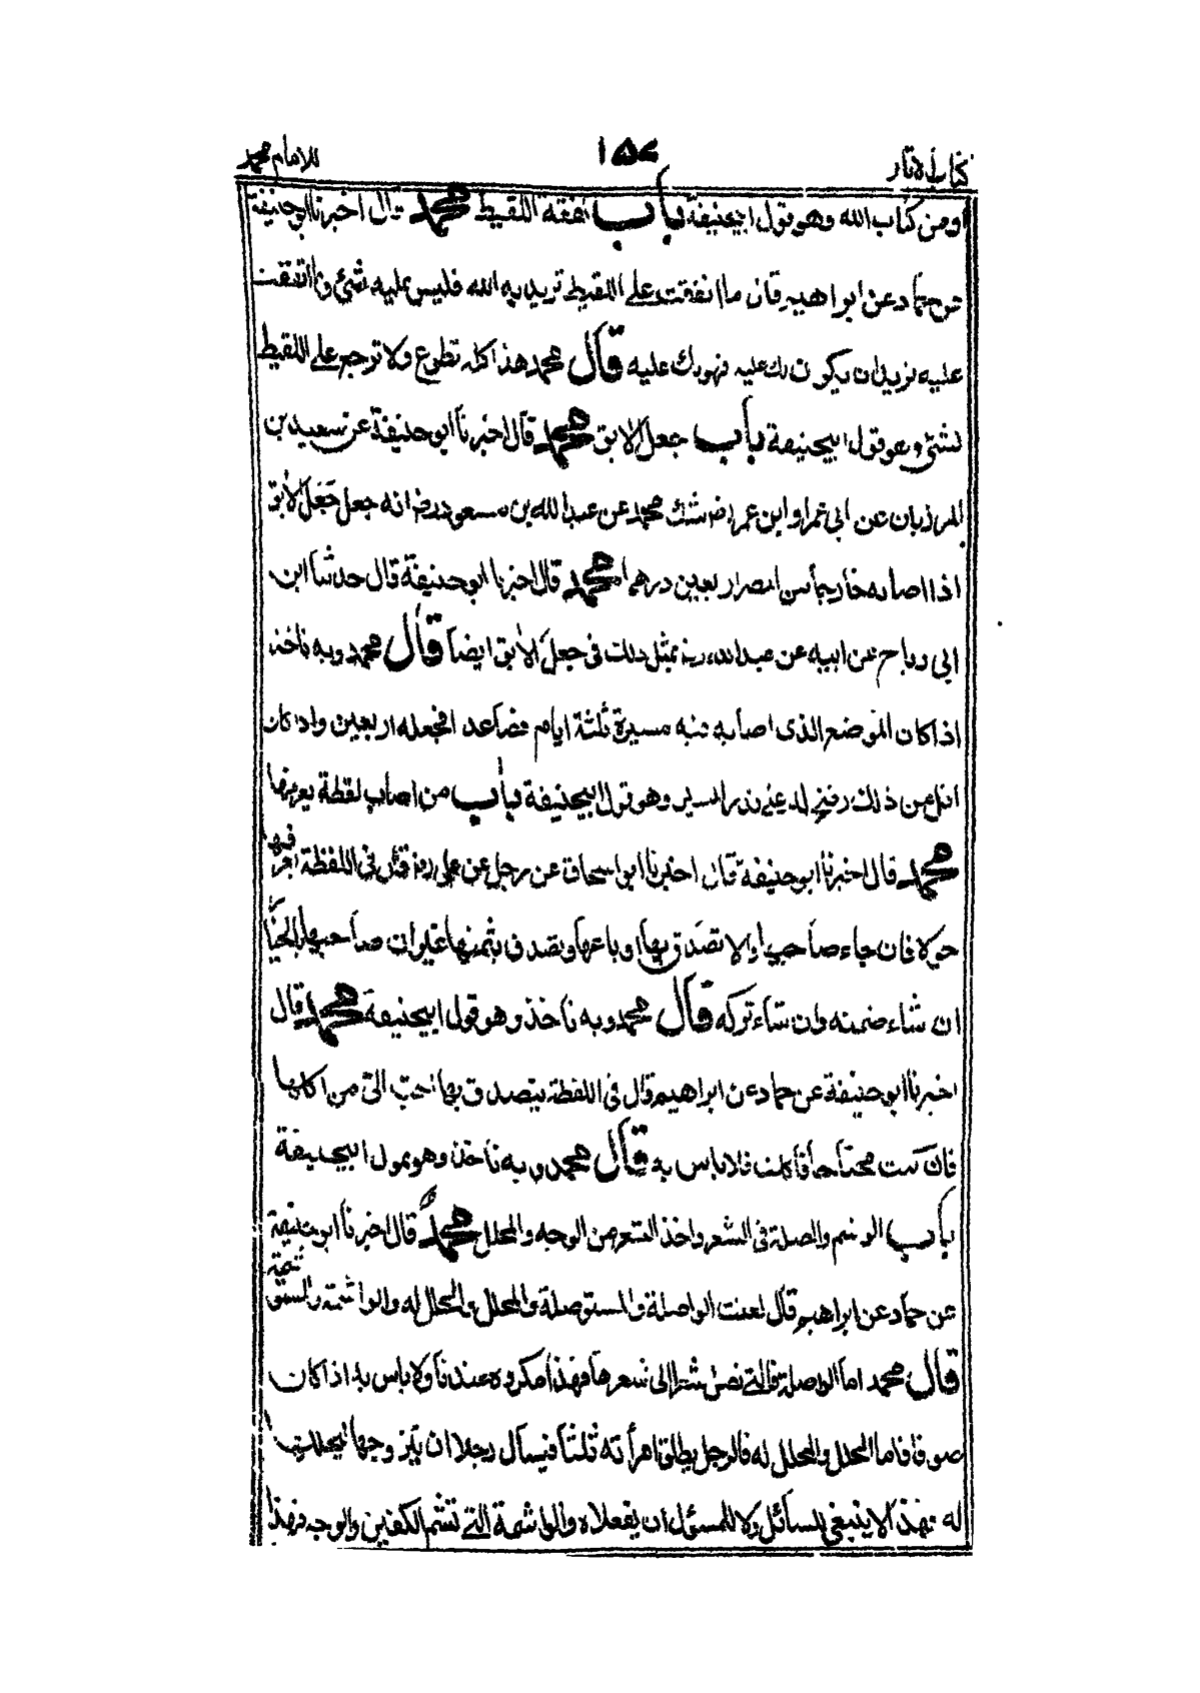 كتاب الاثار ١٥٧ للامام محمد
او من كتاب الله وهو قول ابيحنيفة باب نفقة اللقيط محمد قال اخبرنا ابوحنيفة
عن حماد عن ابراهيم قال ما انفقت على اللقيط تريد به الله فليس عليه شئ وما انفقت
عليه تريد ان يكون لك عليه فهو لك عليه قال محمد هذا كله تطوع ولا ترجع على اللقيط
بشئ وهو قول ابيحنيفة باب جعل الابق محمد قال اخبرنا ابو حنيفة عن سعيد بن
المرزبان عن ابي عمرا وابن عمر شك محمد عن عبد الله بن مسعود رض انه جعل جعل الابق
اذا اصابه خارجا من المصر اربعين درهما محمد قال اخبرنا ابو حنيفة قال حدثنا ابن
ابي رباح عن ابيه عن عبد الله رض بمثل ذلك في جعل الابق ايضا قال محمد وبه ناخذ
اذا كان الموضع الذى اصابه منه مسيرة ثلثة ايام فصاعدا فجعله اربعين واذا كان
اقل من ذلك رضخ له على قدر المسير وهو قول ابيحنيفة باب من اصاب لقطة يعرفها
محمد قال اخبرنا ابو حنيفة قال اخبرنا ابو اسحاق عن رجل عن على رض قال في اللقطة يعرفها
حولا فان جاء صاحبها والا تصدق بها او باعها وتصدق بثمنها غير ان صاحبها بالخيار
ان شاء ضمنه وان شاء تركه قال محمد وبه ناخذ وهو قول ابيحنيفة محمد قال
اخبرنا ابو حنيفة عن حماد عن ابراهيم قال في اللقطة يتصدق بها احب الى من اكلها
فان كنت محتاجا فاكلت فلا باس به قال محمد وبه ناخذ وهو قول ابيحنيفة
باب الوشم والصلة في الشعر واخذ الشعر من الوجه والمحلل محمد قال اخبرنا ابو حنيفة
عن حماد عن ابراهيم قال لعنت الواصلة والمستوصلة والمحلل والمحلل له والواشمة والمستوشمة
قال محمد اما الواصلة فالتي تصل شعرا الى شعرها فهذا مكروه عندنا ولا باس به اذا كان
صوفا فاما المحلل والمحلل له فالرجل يطلق امرأته ثلثا فيسأل رجلا ان يتزوجها ليحللها
له فهذا لا ينبغي للسائل ولا للمسؤل ان يفعلاه والواشمة التي تشم الكفين والوجه فهذا